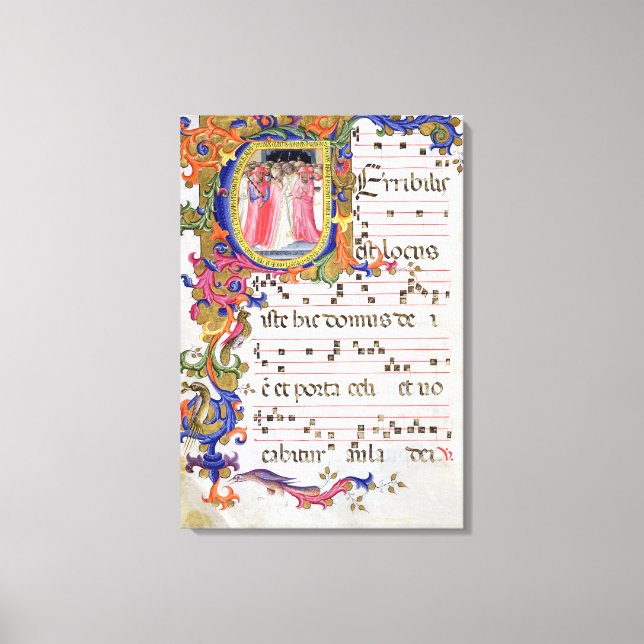 Erribilis
est locus
iste hic domus de i
ē et porta celi et uo
cabitur aula dei V.